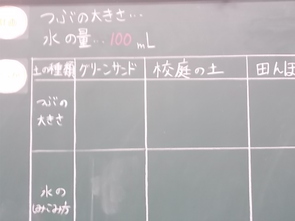 つぶの大きさ…
水の量‥100mL
土の種類 グリーンサンド 校庭の土 田んぼ
つぶの
大きさ
水の
しみこみ方